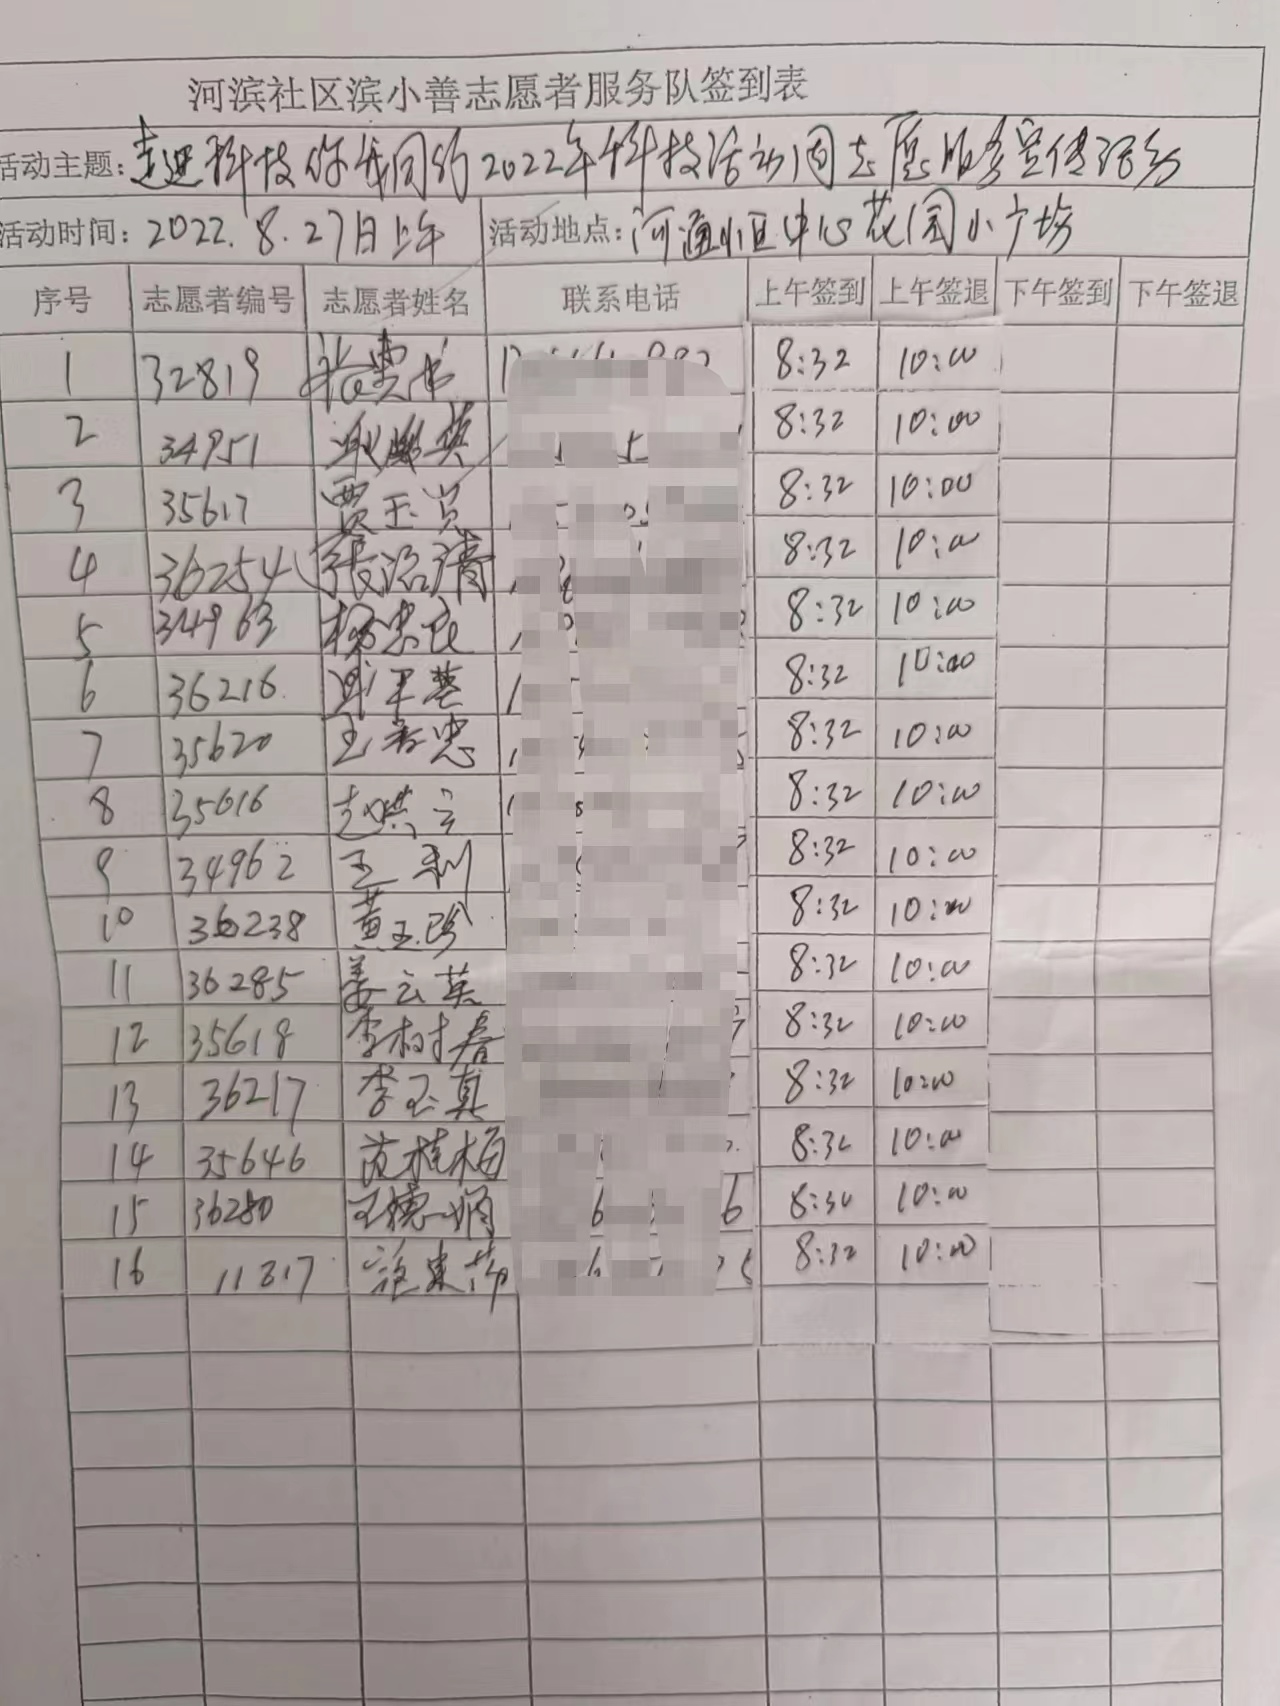 河滨社区滨小善志愿者服务队签到表
活动主题：走进科技你我同行2022年科技活动周志愿服务宣传活动
活动时间：2022.8.27日上午 活动地点：河通恒中心花园小广场
序号 志愿者编号 志愿者姓名 联系电话 上午签到 上午签退 下午签到 下午签退
1 32819 8:32 10:00
2 34951 8:32 10:00
3 35617 贾玉贞 8:32 10:00
4 36254 张治清 8:32 10:00
5 34963 杨忠良 8:32 10:00
6 36216 8:32 10:00
7 35620 王孝忠 8:32 10:00
8 35616 赵洪 8:32 10:00
9 34962 王利 8:32 10:00
10 36238 黄玉珍 8:32 10:00
11 36285 姜云英 8:32 10:00
12 35618 李树春 8:32 10:00
13 36217 李玉真 8:32 10:00
14 35646 范桂柏 8:32 10:00
15 36280 王德炳 8:32 10:00
16 11317 8:32 10:00